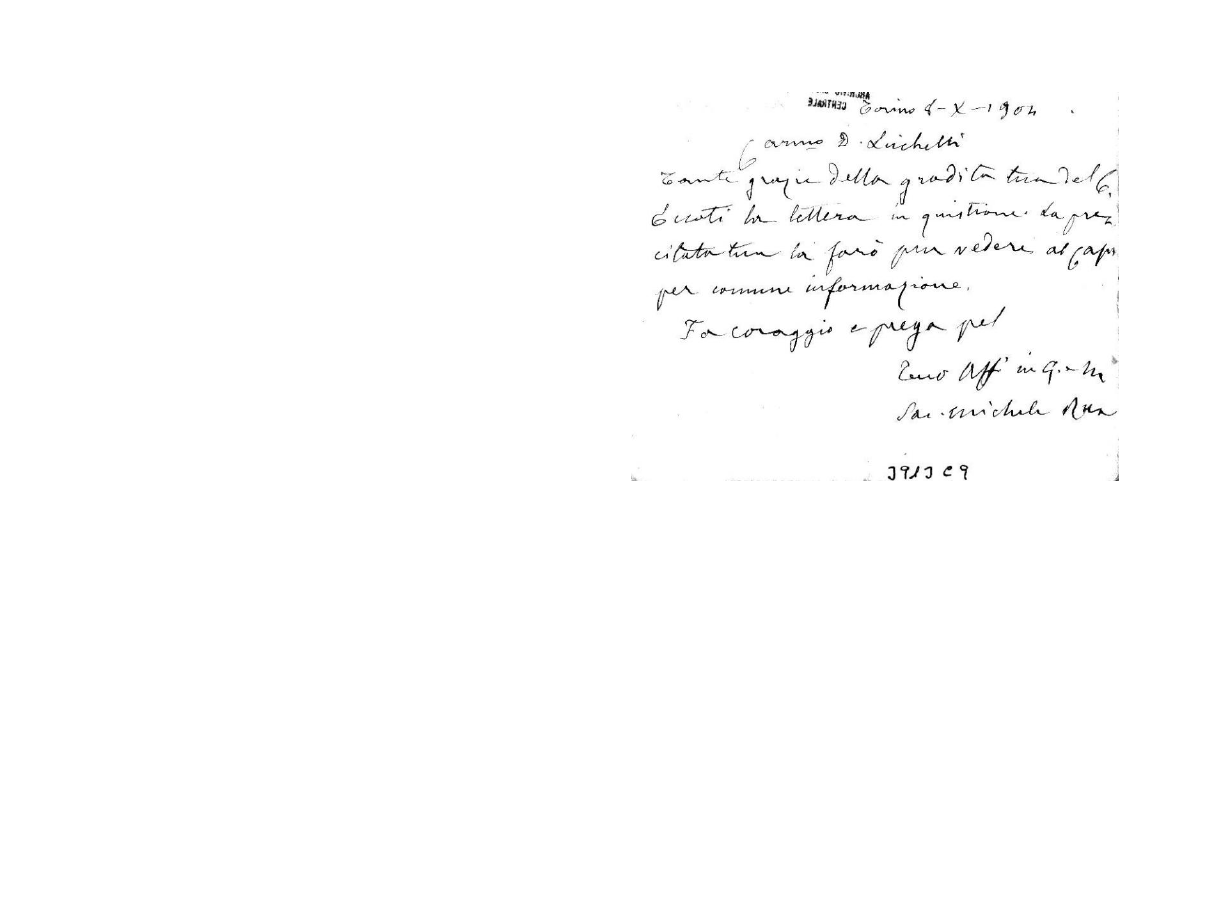 CENTRALE
Torino 8-X-1904
Carmo D. Luchelli
Tante grazie della gradita tua del 6.
Eccoti la lettera in quistione. La pre
citata tua la farò pur vedere al Capi
per comune informazione.
Fa coraggio e prega pel
tuo Aff in G. e M
Sac. Michele Rua
3913 C 9